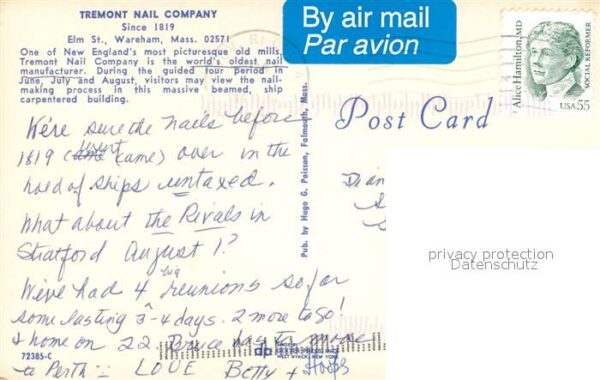 TREMONT NAIL COMPANY
Since 1819
Elm St., Wareham, Mass. 02571
One of New England's most picturesque old mills,
Tremont Nail Company is the world's oldest nail
manufacturer. During the guided tour period in
June, July and August, visitors may view the nail-
making process in this massive beamed, ship
carpentered building.
By air mail
Par avion
Alice Hamilton, MD
SOCIAL REFORMER
USA 55
Post Card
Pub. by Hugo G. Poisson, Falmouth, Mass.
We're sure the nails before
1819 (went came) over in the
hold of ships untaxed.
What about the Rivals in
Stratford August 1?
We've had 4 big reunions so far
some lasting 3-4 days. 2 more to go!
+ home on 22. Bruce has to
a Perth LOVE Betty +
Dian
privacy protection
Datenschutz
72385-C